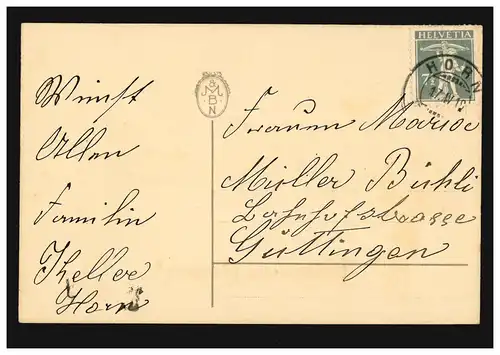 Winst
Allen
Familin
Kheller
Horn
M
&
B
N
HELVETIA
7½
HORN
Frauen Marie
Müller Bühli
Bahnhofstrasse
Güttingen